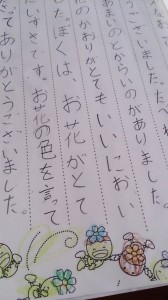 うございました。たべ
あまいのとからいのがありました。
花のかおりがとてもいいにおい
した。ぼくは、お花がとて
にすきです。お花の色を言って
だてありがとうございました。